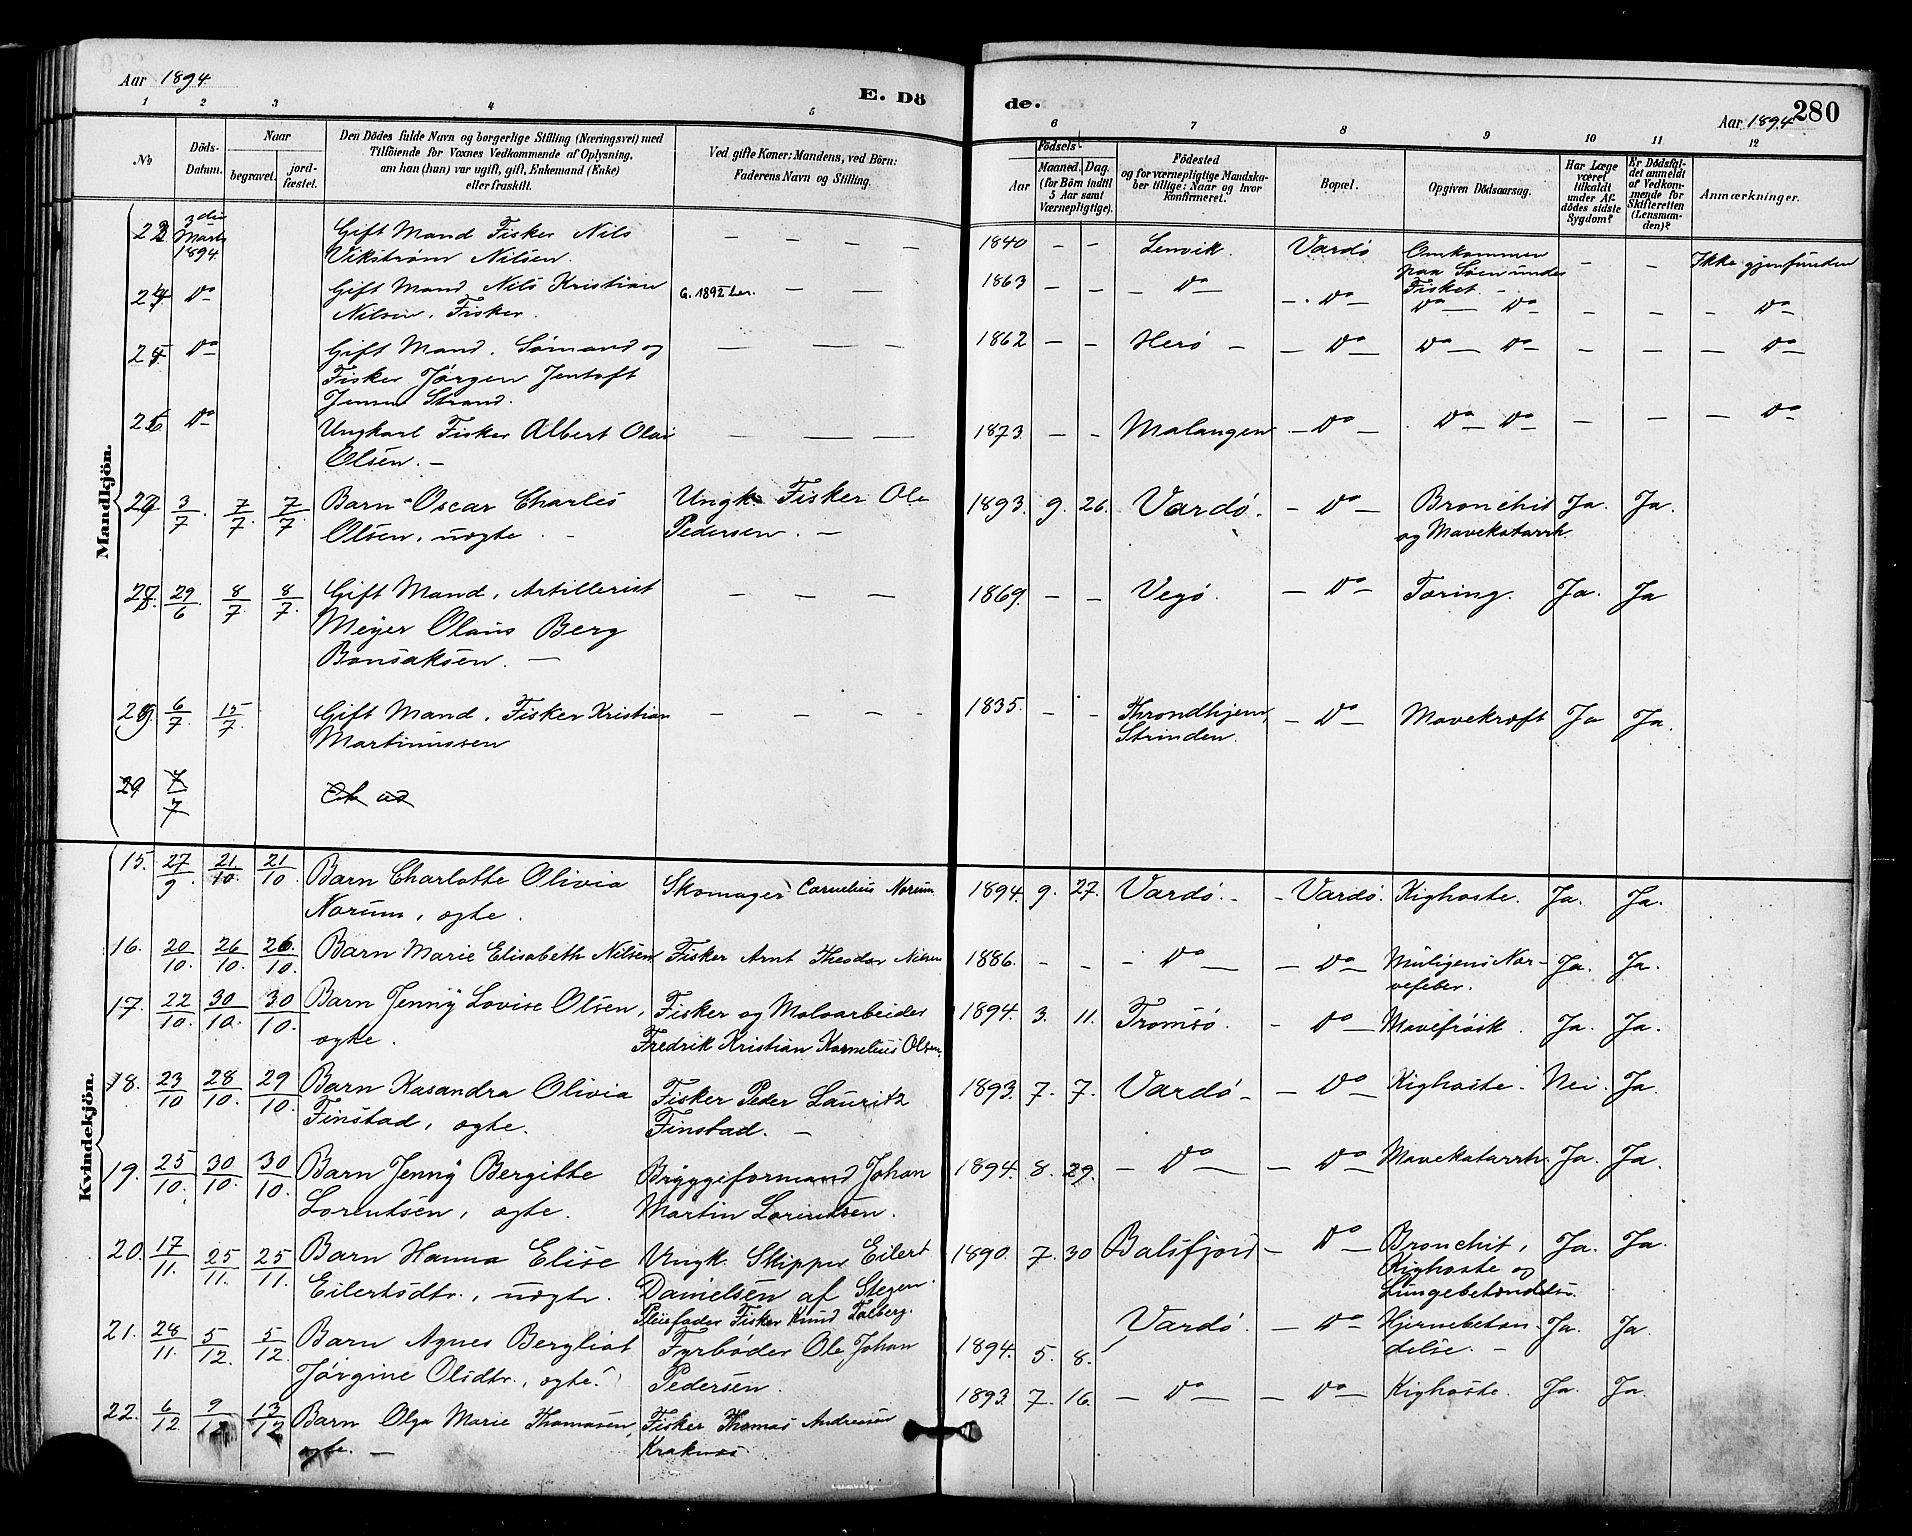 Aar 1894
E. Dö
de.
Aar 1894
280
1 2 3 4 5 6 7 8 9 10 11 12
No
Döds-
Datum.
Naar
begravet.
jord-
fæstet.
Den Dödes fulde Navn og borgerlige Stilling (Næringsvei) med
Tilföiende for Voxnes Vedkommende af Oplysning,
om han (hun) var ugift, gift, Enkemand (Enke)
eller fraskilt.
Ved gifte Koner: Mandens, ved Börn:
Faderens Navn og Stilling.
Födsels
Aar
Maaned. Dag.
(for Börn indtil
5 Aar samt
Værnepligtige).
Födested
og for værnepligtige Mandska-
ber tillige: Naar og hvor
konfirmeret.
Bopæl.
Opgiven Dödsaarsag.
Har Læge
været
tilkaldt
under Af-
dödes sidste
Sygdom?
Er Dödsfal-
det anmeldt
af Vedkom-
mende for
Skifteretten
(Lensman-
den)?
Anmærkninger.
Mandkjön.
3die Marts 1894 Gift Mand Fisker Nils
Vikstrøm Nilsen. — — — — 1840 — — Lenvik. Vardø Omkommen
paa Søen under
Fisket. — — Ikke gjenfunden
Do Gift Mand Nils Kristian
Nilsen, Fisker. G. 1892 Len. — — 1863 — — — Do — Do — Do — Do — — — Do
Do Gift Mand, Sømand og
Fisker Jørgen Jentoft
Jensen Strand. — — — 1862 — — Herø — — Do — Do — Do — — — — Do
Do Ungkarl Fisker Albert Olai
Olsen. — — — — 1873. — — Malangen — Do — Do — Do — — — — Do
3/7 7/7. 7/7 Barn Oscar Charles
Olsen, uægte. Ungk. Fisker Ole
Pedersen. — 1893. 9. 26. Vardø. — Do — Bronchit
og Mavekatarrh. Ja. Ja.
29/6 8/7 8/7 Gift Mand, Artillerist
Meyer Olaus Berg
Bonsaksen. — — — — 1869. — — Vegø. — Do — Tæring. Ja. Ja
6/7 15/7 Gift Mand, Fisker Kristian
Martinussen — — — 1835. — — Throndhjem,
Strinden. — Do — Mavekræft Ja Ja.
29 7/7
Kvindekjön.
15. 27/9 21/10. 21/10 Barn Charlotte Olivia
Norum, ægte. Skomager Cornelius Norum 1894. 9. 27. Vardø. — — Vardø. Kighoste. Ja. Ja.
16. 20/10. 26/10. 26/10. Barn Marie Elisabeth Nilsen Fisker Arnt Theodor Nilsen 1886. — — — Do — — Do — Muligens Ner-
vefeber. Ja. Ja.
17. 22/10. 30/10. 30/10. Barn Jenny Lovise Olsen,
ægte. Fisker og Moloarbeider
Fredrik Kristian Kornelius Olsen. 1894. 3. 11. Tromsø. — Do — Mavefrøsk. Ja. Ja.
18. 23/10 28/10. 29/10. Barn Kasandra Olivia
Finstad, ægte. Fisker Peder Lauritz
Finstad. — 1893. 7. 7. Vardø — — Do — Kighoste. Nei. Ja.
19. 25/10. 30/10. 30/10. Barn Jenny Bergitte
Lorentsen, ægte. Bryggeformand Johan
Martin Lorentsen. 1894. 8. 29. — Do — — Do — Mavekatarrh. Ja. Ja.
20. 17/11. 25/11. 25/11. Barn Hanna Elise
Eilertsdtr., uægte. Ungk. Skipper Eilert
Danielsen af Stegen.
Pleiefader Fisker Knud Tolberg. 1890. 7. 30 Balsfjord — Do — Bronchit,
Kighoste og
Lungebetændelse. Ja. Ja.
21. 28/11. 5/12. 5/12. Barn Agnes Bergliot
Jørgine Olsdtr., ægte. Fyrbøder Ole Johan
Pedersen. 1894. 5. 8. Vardø. — Do — Hjernebetæn-
delse. — Ja. Ja
22. 6/12. 9/12 13/12 Barn Olga Marie Thomasen,
ægte. — Fisker Thomas Andreasen
Kraknæs 1893. 7. 16. — Do — — Do — Kighoste. Ja. Ja.